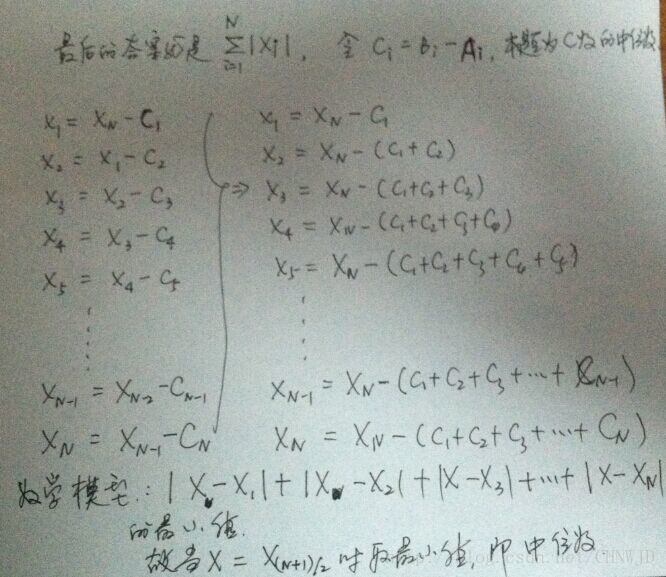 最后的答案如是 \sum_{i=1}^{N}|X_i|, 令 C_i = B_i - A_i, 本题为C数的中位数
X_1 = X_N - C_1
X_2 = X_1 - C_2
X_3 = X_2 - C_3
X_4 = X_3 - C_4
X_5 = X_4 - C_5
⋮
X_{N-1} = X_{N-2} - C_{N-1}
X_N = X_{N-1} - C_N
⇒
X_1 = X_N - C_1
X_2 = X_N - (C_1+C_2)
X_3 = X_N - (C_1+C_2+C_3)
X_4 = X_N - (C_1+C_2+C_3+C_4)
X_5 = X_N - (C_1+C_2+C_3+C_4+C_5)
⋮
X_{N-1} = X_N - (C_1+C_2+C_3+⋯+C_{N-1})
X_N = X_N - (C_1+C_2+C_3+⋯+C_N)
数学模型: |X-X_1|+|X-X_2|+|X-X_3|+⋯+|X-X_N|
的最小值.
故当X = X_{(N+1)/2} 时取最小值, 即中位数
blog.csdn.net/CHNWJD